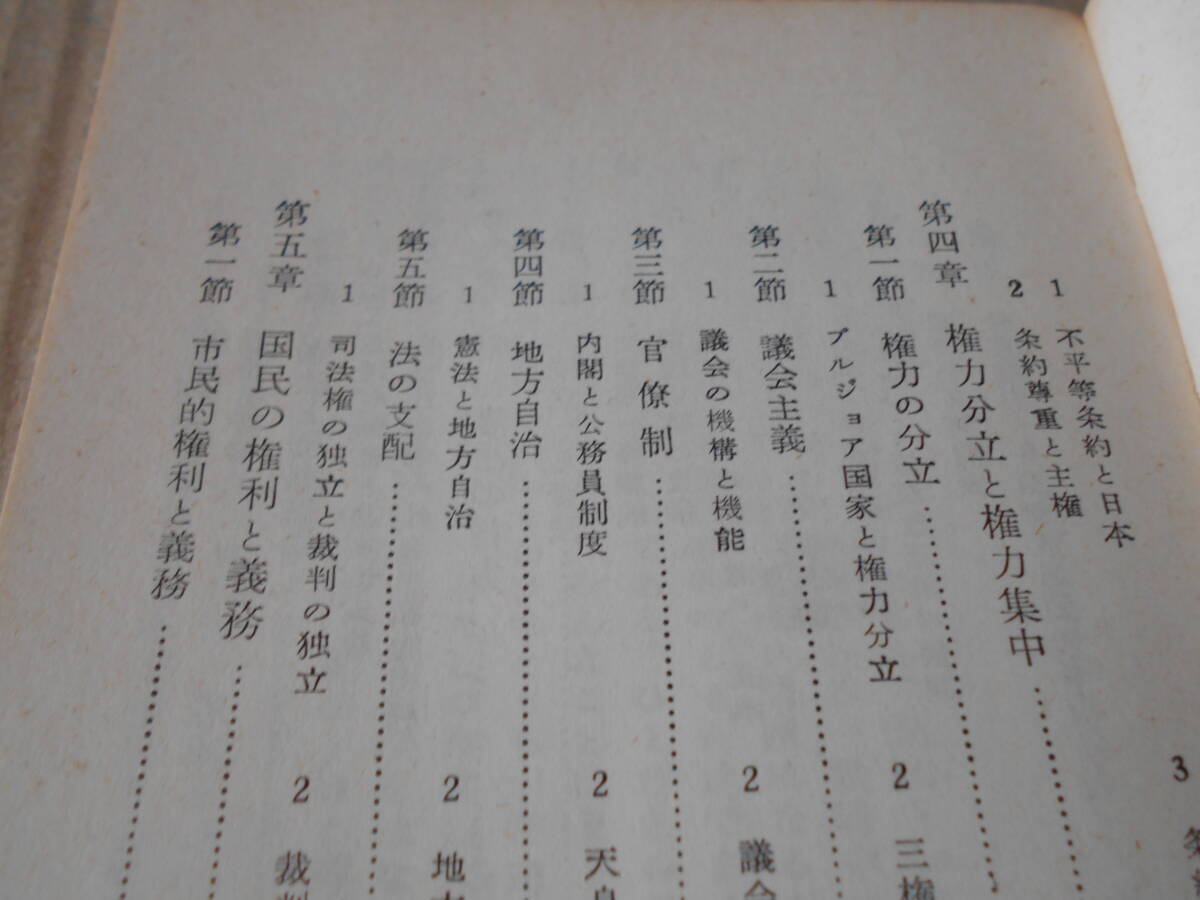 1 不平等条約と日本
2 条約尊重と主権
3 条
第四章 権力分立と権力集中
第一節 権力の分立
1 ブルジョア国家と権力分立 2 三権
第二節 議会主義
1 議会の機構と機能 2 議会
第三節 官僚制
1 内閣と公務員制度 2 天皇
第四節 地方自治
1 憲法と地方自治 2 地方
第五節 法の支配
1 司法権の独立と裁判の独立 2 裁判
第五章 国民の権利と義務
第一節 市民的権利と義務